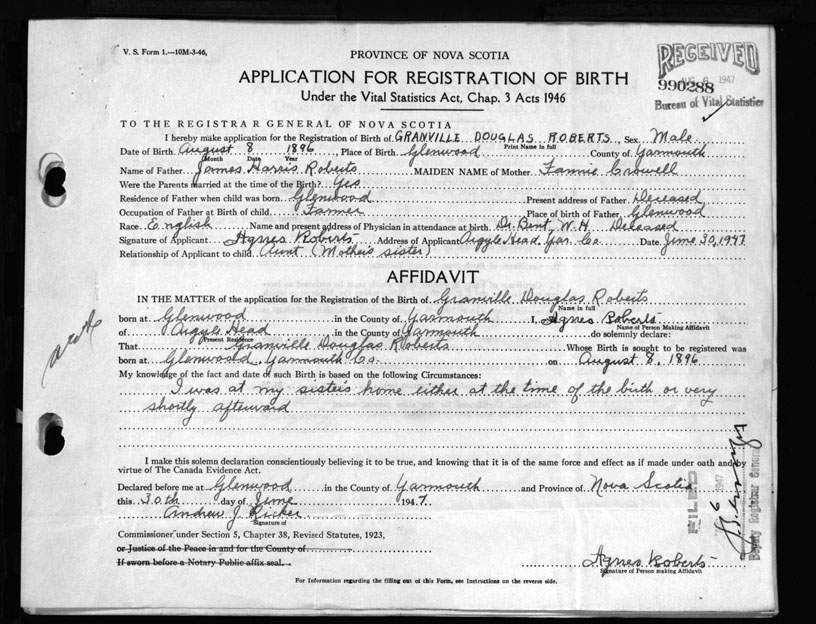 V. S. Form 1.—10M-3-46.
PROVINCE OF NOVA SCOTIA
APPLICATION FOR REGISTRATION OF BIRTH
Under the Vital Statistics Act, Chap. 3 Acts 1946
RECEIVED
AUG 6 1947
990288
Bureau of Vital Statistics
TO THE REGISTRAR GENERAL OF NOVA SCOTIA
I hereby make application for the Registration of Birth of GRANVILLE DOUGLAS ROBERTS, Sex Male
Print Name in full
Date of Birth August 8 1896, Place of Birth Glenwood County of Yarmouth
Month Date Year
Name of Father James Harris Roberts MAIDEN NAME of Mother Fannie Crowell
Were the Parents married at the time of the Birth? Yes
Residence of Father when child was born Glenwood Present address of Father Deceased
Occupation of Father at Birth of child Farmer Place of birth of Father Glenwood
Race English Name and present address of Physician in attendance at birth Dr. Bent, W. H. Deceased
Signature of Applicant Agnes Roberts Address of Applicant Argyle Head Yar. Co. Date June 30, 1947
Relationship of Applicant to child Aunt (Mother's sister)
AFFIDAVIT
IN THE MATTER of the application for the Registration of the Birth of Granville Douglas Roberts
Name in full
born at Glenwood in the County of Yarmouth I, Agnes Roberts
Name of Person Making Affidavit
of Argyle Head in the County of Yarmouth do solemnly declare:
Present Residence
That Granville Douglas Roberts Whose Birth is sought to be registered was
born at Glenwood, Yarmouth Co. on August 8, 1896
My knowledge of the fact and date of such Birth is based on the following Circumstances:
I was at my sister's home either at the time of the birth or very
shortly afterward
I make this solemn declaration conscientiously believing it to be true, and knowing that it is of the same force and effect as if made under oath and by
virtue of The Canada Evidence Act.
Declared before me at Glenwood in the County of Yarmouth and Province of Nova Scotia
this 30th day of June 1947
Andrew J. Ricker
Signature of
Commissioner under Section 5, Chapter 38, Revised Statutes, 1923,
or Justice of the Peace in and for the County of
If sworn before a Notary Public affix seal.
Agnes Roberts
Signature of Person making Affidavit
For Information regarding the filling out of this Form, see Instructions on the reverse side.
FILED
6 1947
Deputy Registrar General